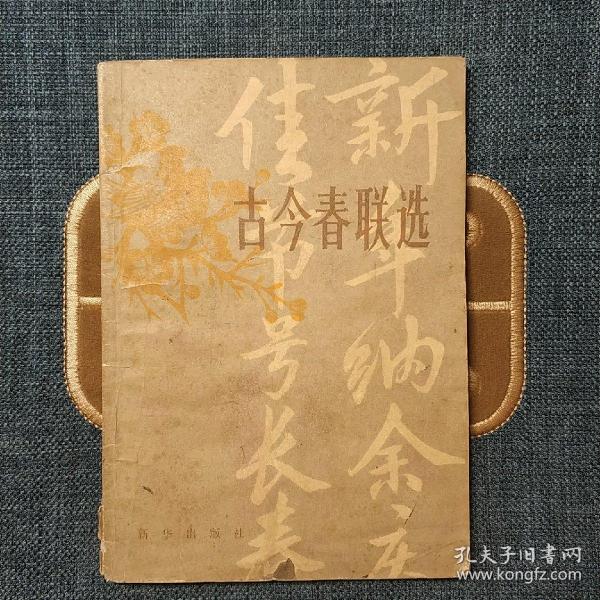 新年纳余庆
佳节号长春
古今春联选
新华出版社
孔夫子旧书网
www.kongfz.com